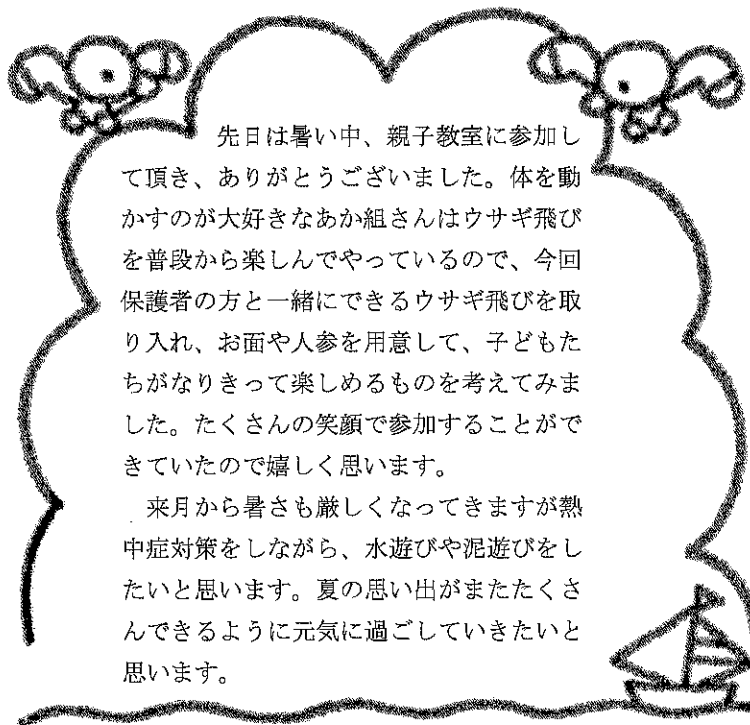 先日は暑い中、親子教室に参加し
て頂き、ありがとうございました。体を動
かすのが大好きなあか組さんはウサギ飛び
を普段から楽しんでやっているので、今回
保護者の方と一緒にできるウサギ飛びを取
り入れ、お面や人参を用意して、子どもた
ちがなりきって楽しめるものを考えてみま
した。たくさんの笑顔で参加することがで
きていたので嬉しく思います。
来月から暑さも厳しくなってきますが熱
中症対策をしながら、水遊びや泥遊びをし
たいと思います。夏の思い出がまたたくさ
んできるように元気に過ごしていきたいと
思います。